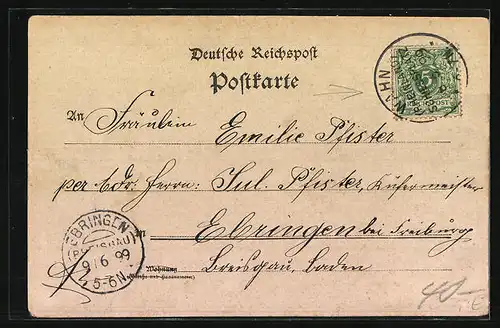 Deutsche Reichspost
Postkarte
An Fräulein Emilie Pfister
per Adr: Herrn: Jul. Pfister, Küfermeister
in Ebringen bei Freiburg
Breisgau, Baden
Wohnung
(Straße und Hausnummer)
EBRINGEN
(BREISGAU)
9 6 99
5-6N.